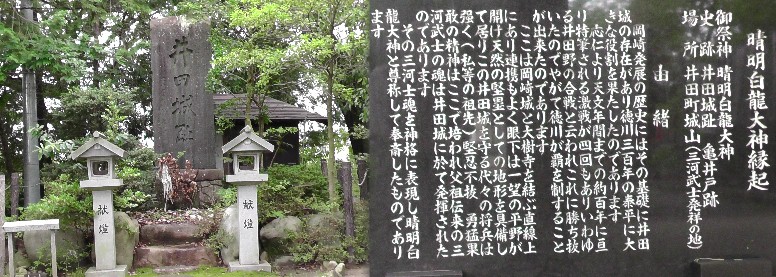 井田城趾
献燈
献燈
晴明白龍大神縁起
御祭神 晴明白龍大神
史跡 井田城趾 亀井戸跡
場所 井田町城山(三河武士発祥の地)
由緒
岡崎発展の歴史にはその基礎に井田
城の存在があり徳川三百年の泰平に大
きな役割を果たしたのであります
応仁より天文年間までの約百年に亘
り特筆される激戦が四回もありいわゆ
る井田野の合戦と云われこれに勝ち抜
いたのでやがて徳川が覇を制すること
が出来たのであります
ここは岡崎城と大樹寺を結ぶ直線上
にあり連携もよく眼下は一望の平野が
開け天然の堅塁としての地形を具備し
て居りこの井田城を守る代々の将兵は
強く(私等の祖先)堅忍不抜 勇猛果
敢の精神はここで培われ父祖伝来の三
河武士の魂は井田城に於て発揮された
のであります
その三河士魂を神格に表現し晴明白
龍大神と尊称して奉斎したものであり
ます